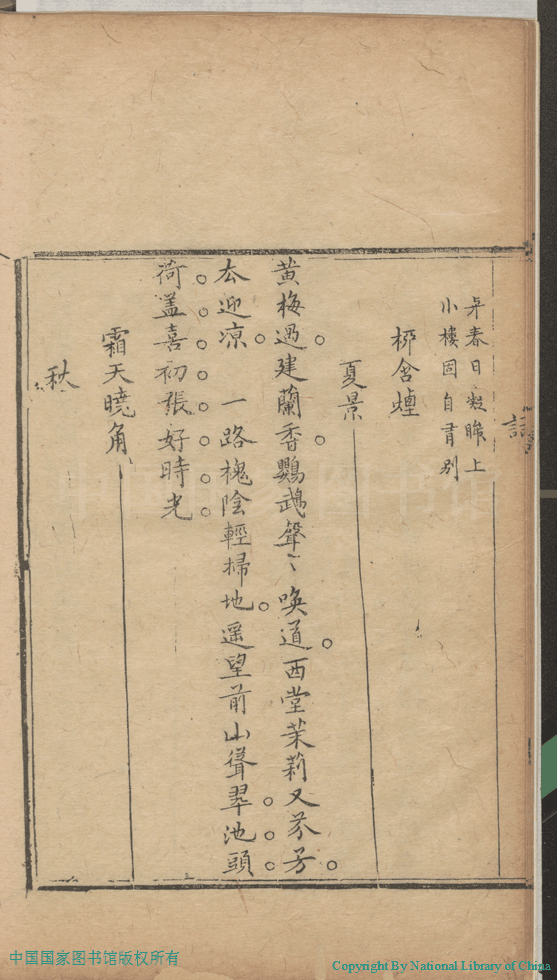 早春日凝眸上
小樓固自有别
栁含煙
夏景
黄梅過建蘭香鸚鵡聲〻喚道西堂茉莉又芬芳
厺迎凉　一路槐陰輕掃地遥望前山聳翠池頭
荷盖喜初張好時光
霜天曉角
秋
中国国家图书馆版权所有
Copyright By National Library of China